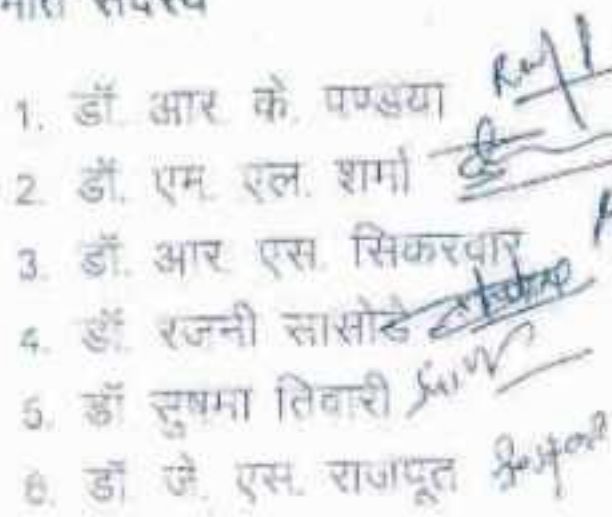 समिति सदस्य
1. डॉ. आर. के. पण्डया
2. डॉ. एम. एल. शर्मा
3. डॉ. आर. एस. सिकरवार
4. डॉ. रजनी सासोडे
5. डॉ सुषमा तिवारी
6. डॉ. जे. एस. राजपूत